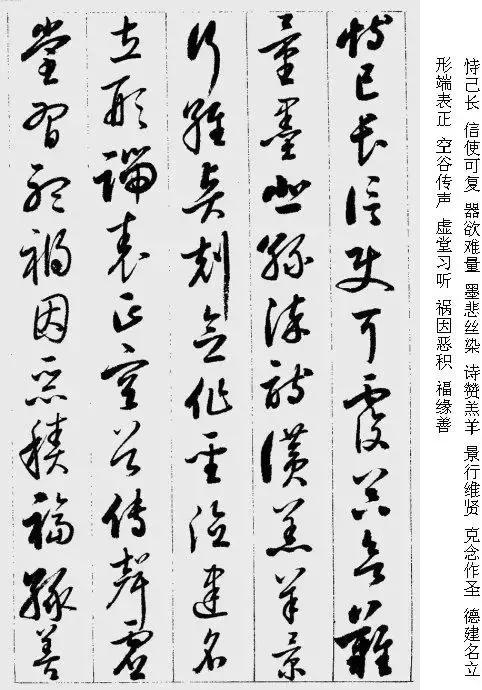 恃己长 信使可复 器欲难量 墨悲丝染 诗赞羔羊 景行维贤 克念作圣 德建名立
形端表正 空谷传声 虚堂习听 祸因恶积 福缘善
恃己長信使可覆器欲難
量墨悲絲染詩讚羔羊景
行維賢剋念作聖德建名
立形端表正空谷傳聲虛
堂習聽禍因惡積福緣善